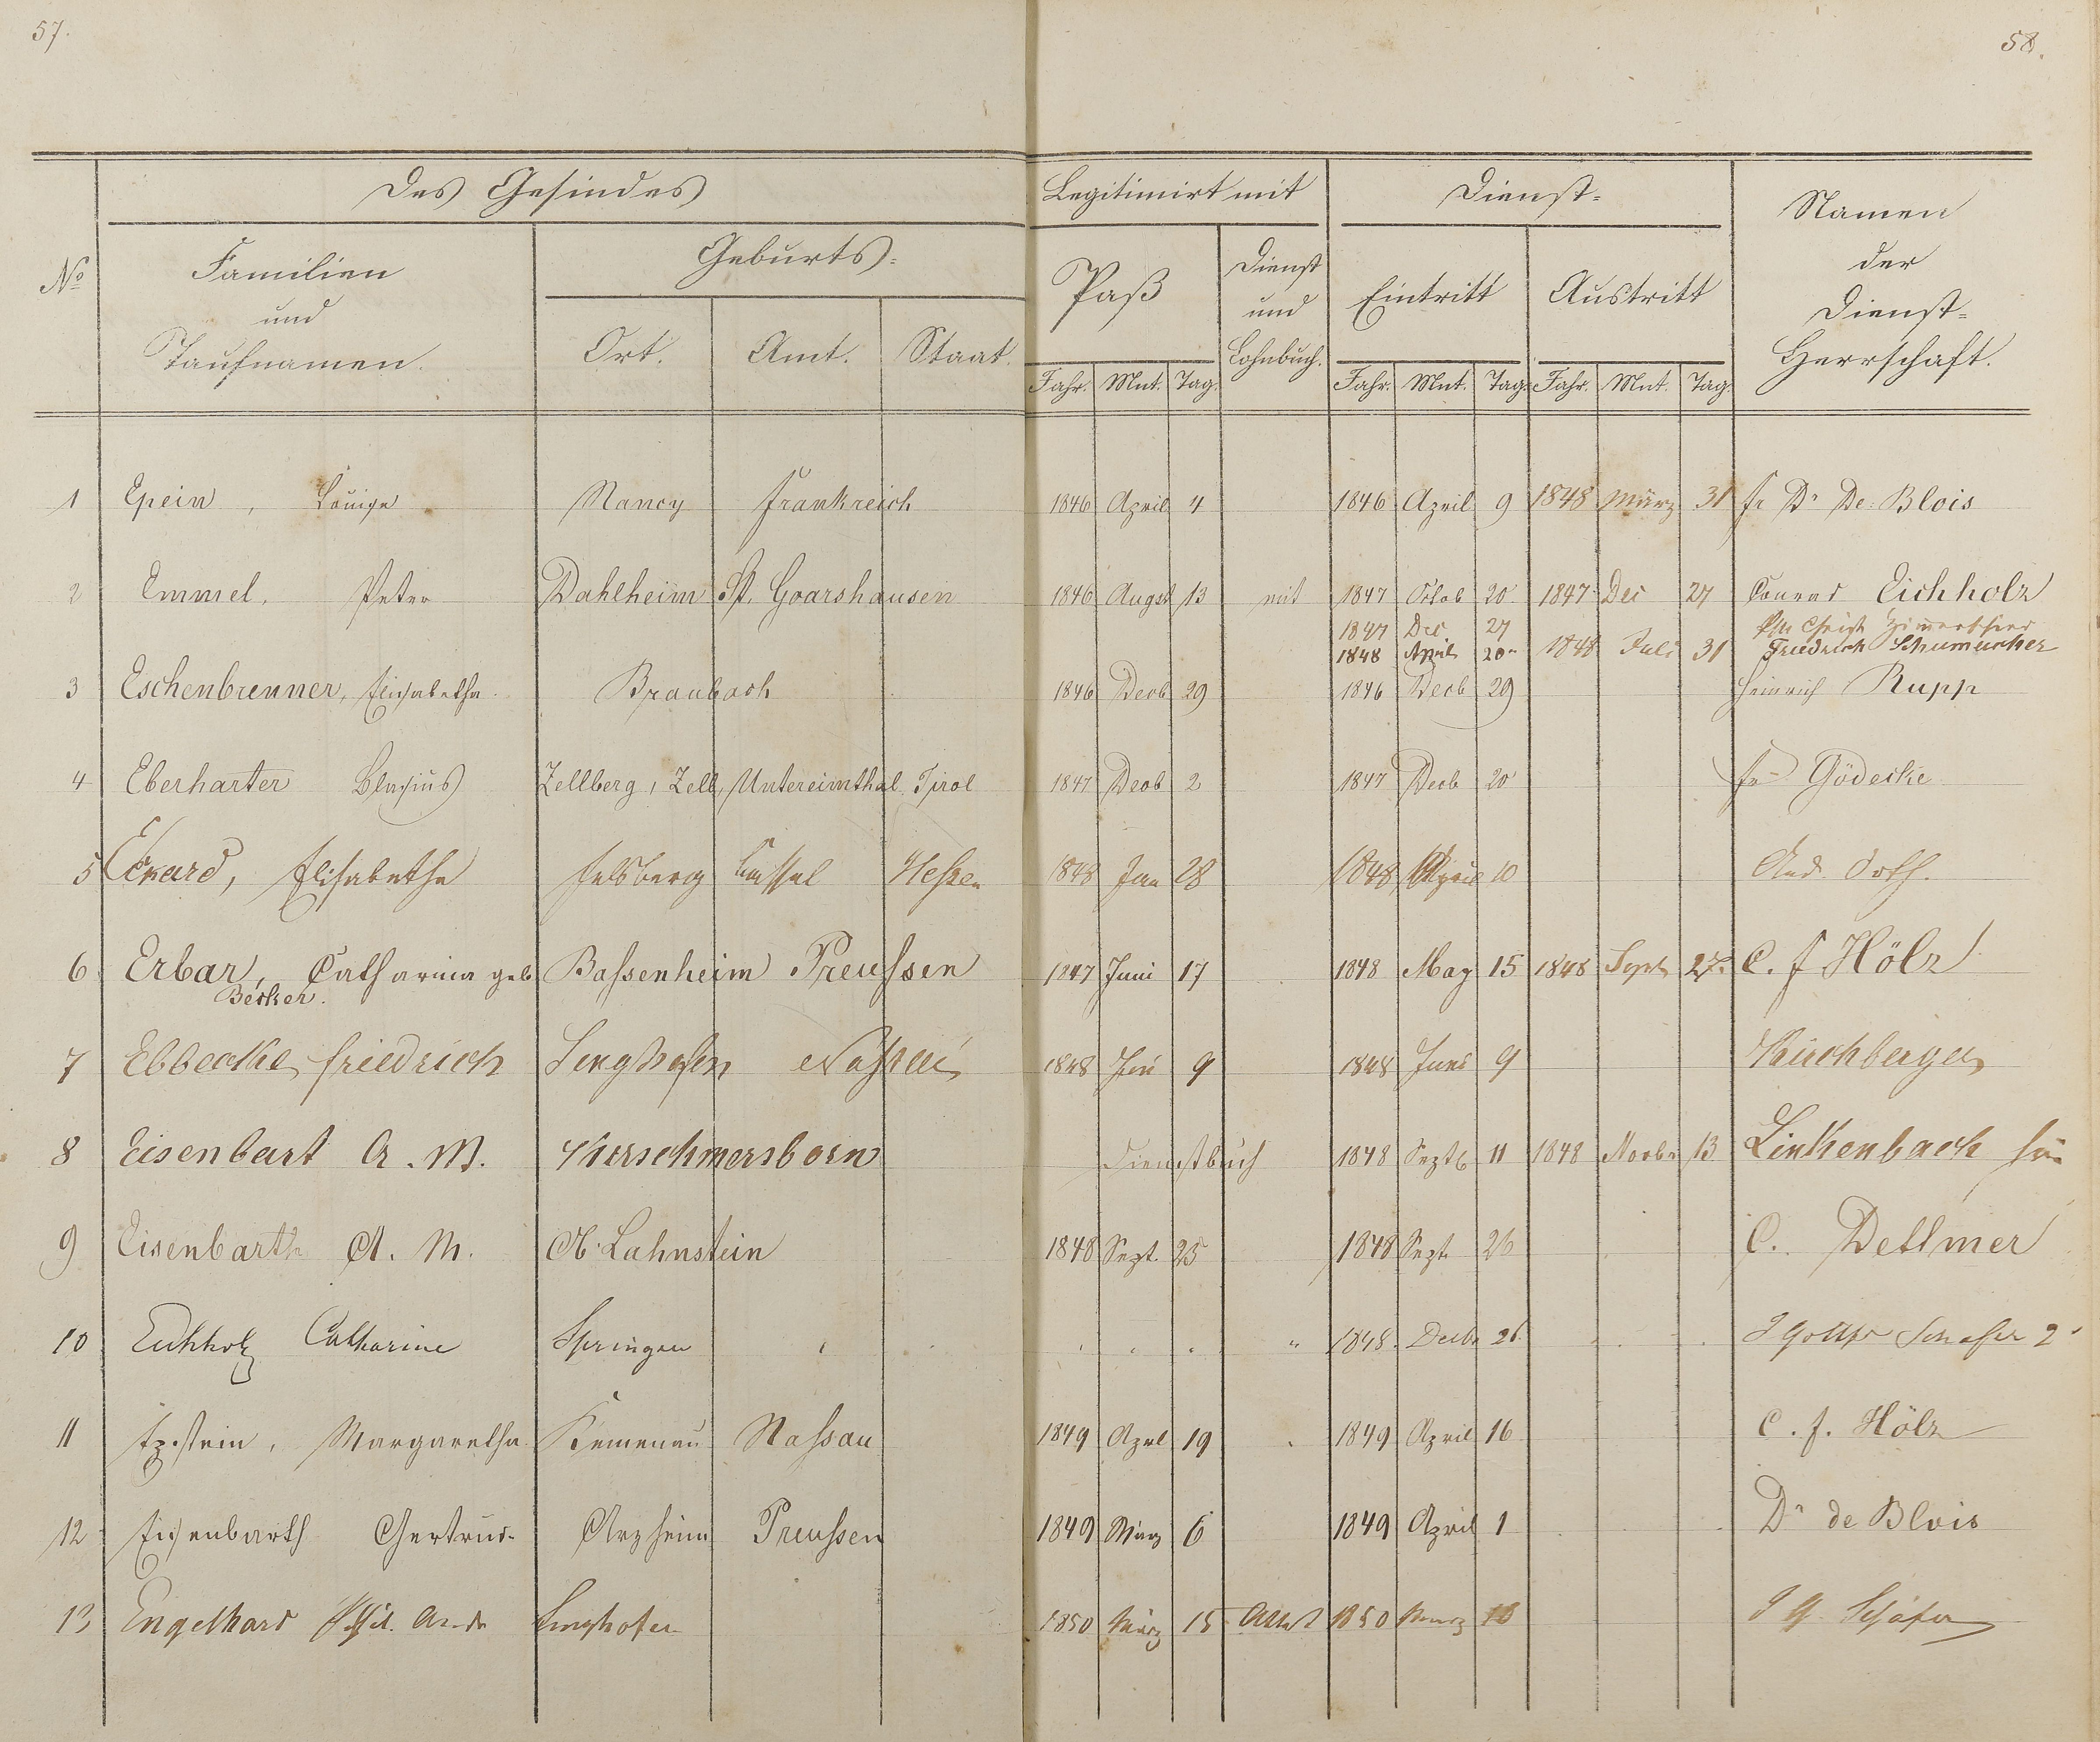 57.
58.
Des Gesindes
Legitimirt mit
Dienst-
Namen
der
Dienst-
Herrschaft.
No
Familien
und
Taufnamen.
Geburts-
Ort. Amt. Staat.
Paß
Dienst
und
Lohnbuch.
Eintritt
Austritt
Jahr. Mnt. Tag. Jahr. Mnt. Tag. Jahr. Mnt. Tag.
1 Epein, Louise Nancy Frankreich 1846 April 4 1846 April 9 1848 März 31 Fr Dr De Blois
2 Emmel, Peter Dahlheim St. Goarshausen 1846 Augst 13 mit 1847 Octob 20 1847 Dec 27 Conrad Eichholz
1847 Dec 27 Christ
1848 April 20 1848 Juli 31 Friedrich Schumacher
3 Eschenbrenner, Elisabetha Braubach 1846 Decb 29 1846 Decb 29 Heinrich Rupp
4 Eberharter Blasius Zellberg, Zell, Untereimthal Tirol 1847 Decb 2 1847 Decb 20 Fr Gödecke
5 Eckard, Elisabetha Felsberg Cassel Hessen 1848 Jan 28 1848 April 10 And.
6 Erbar, Catharina geb Bassenheim Preussen 1847 Juni 17 1848 May 15 1848 Sept C. F Hölz
Becker.
7 Ebbecke Friedrich Singhofen Nassau 1848 9 1848 Juni 9 Kirchberger
8 Eisenbart A. M. Hirschmersborn Dienstbuch 1848 Septb 11 1848 Novbr 13 Linkenbach
9 Eisenbarth A. M. Ob. Lahnstein 1848 Sept. 25 1848 Sept 26 C. Dellmer
10 Eichholz Catharine Springen " 1848. Decbr 26 J Gottfr Schäfer 2
11 Epstein, Margaretha Kemenau Nassau 1849 Aprl 19 1849 April 16 C. F. Hölz
12 Eisenbarth Gertrud Arzheim Preussen 1849 März 6 1849 April 1 Dr de Blois
13 Engelhard Singhofen 1850 März 15 Attest 1850 März J G. Schäfer